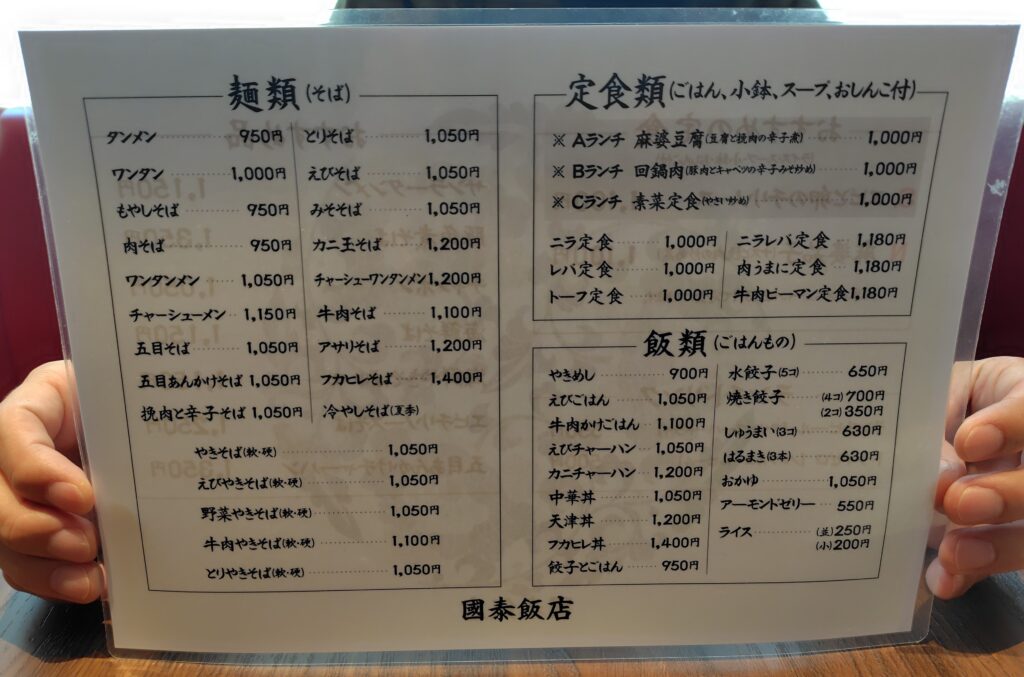 麺類(そば)
タンメン 950円
ワンタン 1,000円
もやしそば 950円
肉そば 950円
ワンタンメン 1,050円
チャーシューメン 1,150円
五目そば 1,050円
五目あんかけそば 1,050円
挽肉と辛子そば 1,050円
とりそば 1,050円
えびそば 1,050円
みそそば 1,050円
カニ玉そば 1,200円
チャーシューワンタンメン 1,200円
牛肉そば 1,100円
アサリそば 1,200円
フカヒレそば 1,400円
冷やしそば(夏季)
やきそば(軟・硬) 1,050円
えびやきそば(軟・硬) 1,050円
野菜やきそば(軟・硬) 1,050円
牛肉やきそば(軟・硬) 1,100円
とりやきそば(軟・硬) 1,050円
定食類(ごはん、小鉢、スープ、おしんこ付)
※ Aランチ 麻婆豆腐(豆腐と挽肉の辛子煮) 1,000円
※ Bランチ 回鍋肉(豚肉とキャベツの辛子みそ炒め) 1,000円
※ Cランチ 素菜定食(やさい炒め) 1,000円
ニラ定食 1,000円
レバ定食 1,000円
トーフ定食 1,000円
ニラレバ定食 1,180円
肉うまに定食 1,180円
牛肉ピーマン定食 1,180円
飯類(ごはんもの)
やきめし 900円
えびごはん 1,050円
牛肉かけごはん 1,100円
えびチャーハン 1,050円
カニチャーハン 1,200円
中華丼 1,050円
天津丼 1,200円
フカヒレ丼 1,400円
餃子とごはん 950円
水餃子(5コ) 650円
焼き餃子 (4コ)700円
(2コ)350円
しゅうまい(3コ) 630円
はるまき(3本) 630円
おかゆ 1,050円
アーモンドゼリー 550円
ライス (並)250円
(小)200円
國泰飯店